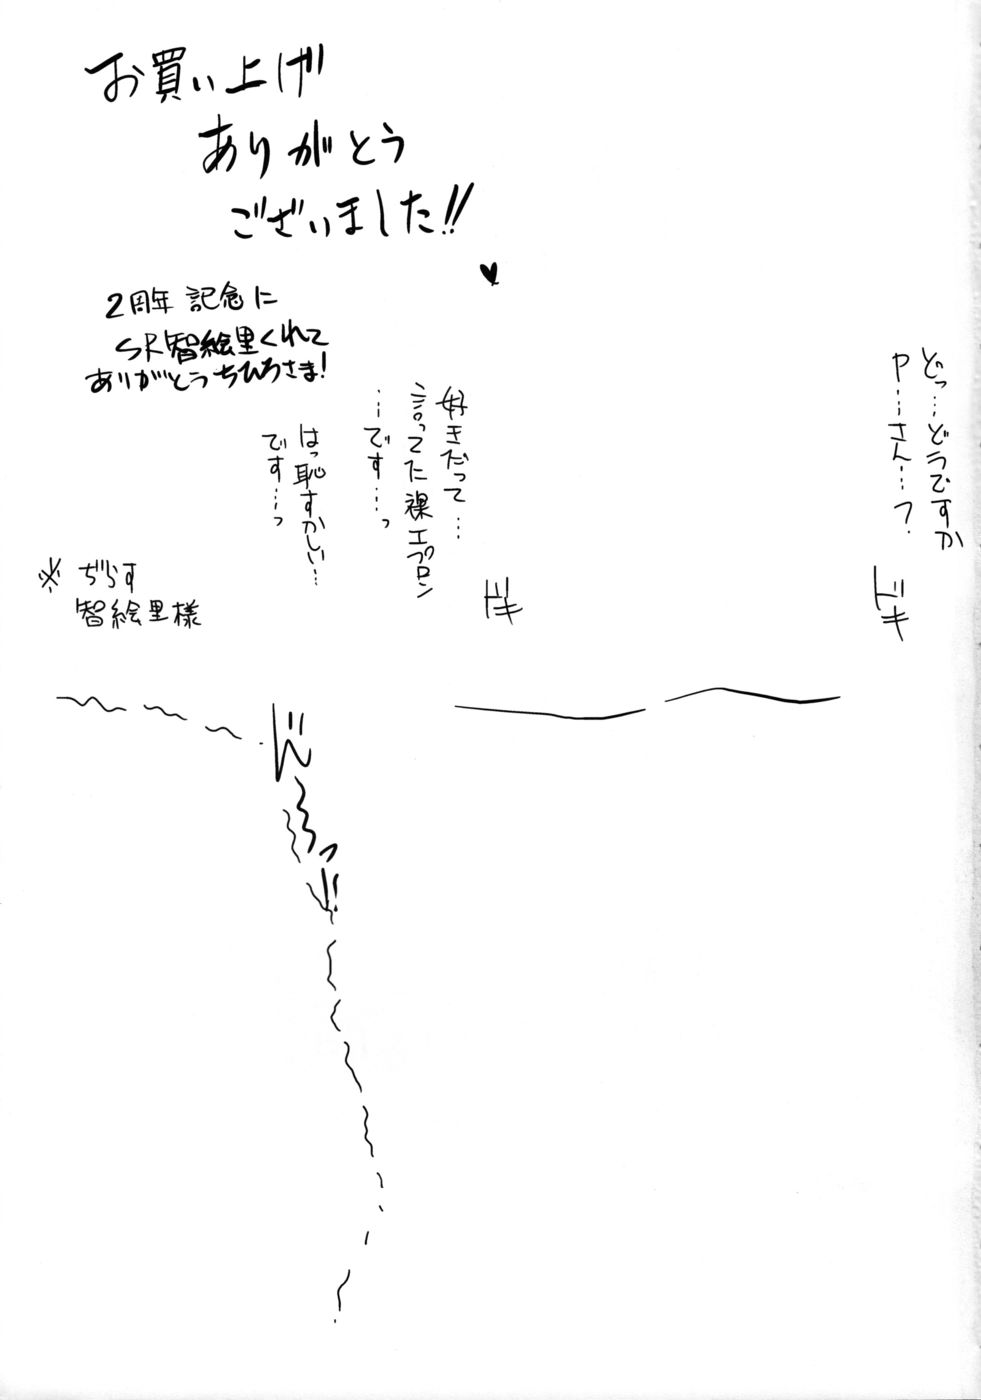 お買い上げ
ありがとう
ございました!!
♥
2周年 記念に
SR智絵里くれて
ありがとうちひろさま!
どっ…どうですか
P…さん…?
ドキ
好きだって…
言ってた裸エプロン
…です…っ
はっ恥ずかしい…
です…っ
ドキ
※ ぢらす
智絵里様
どん
〜っ
!!